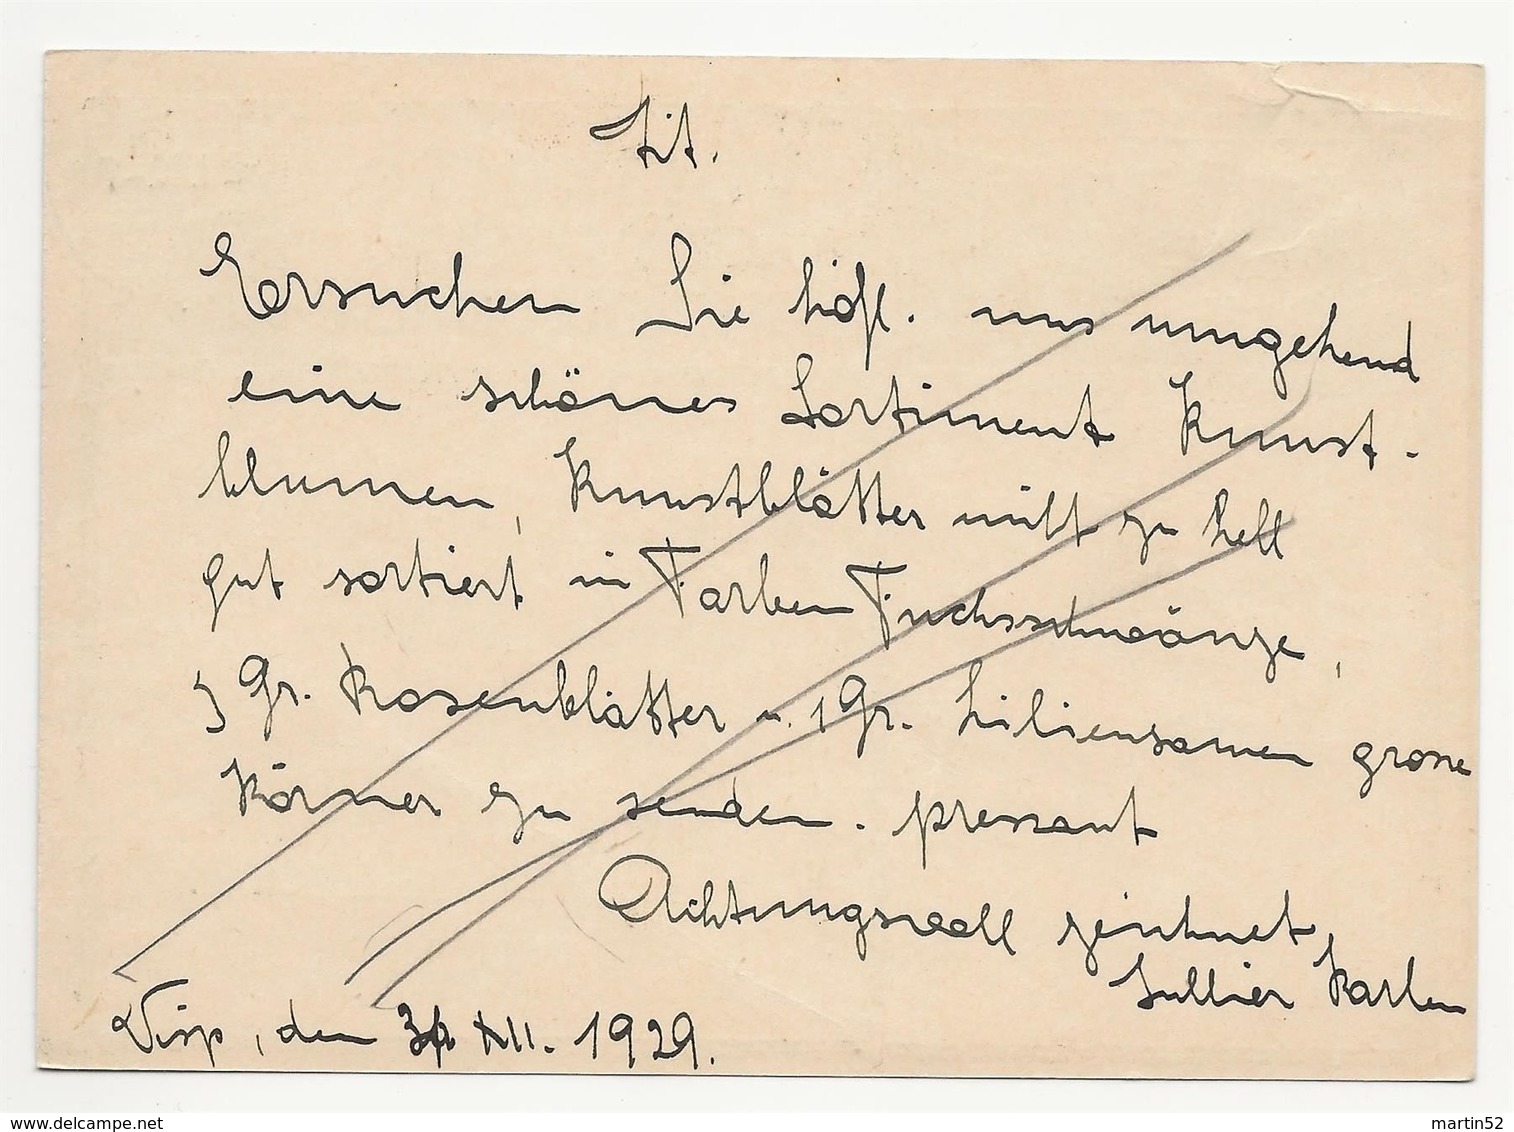 Tit.
Ersuchen Sie höfl. uns umgehend
eine schönes Sortiment Kunst-
blumen, Kunstblätter nitt zu hell
gut sortiert in Farben Fuchsschwänze,
3 Gr. Rosenblätter u. 1 Gr. Liliensamen grosse
Körner zu senden. pressant
Achtungsvoll zeichnet
Karlen
Visp, den XII. 1929.
delcampe.net
martin52